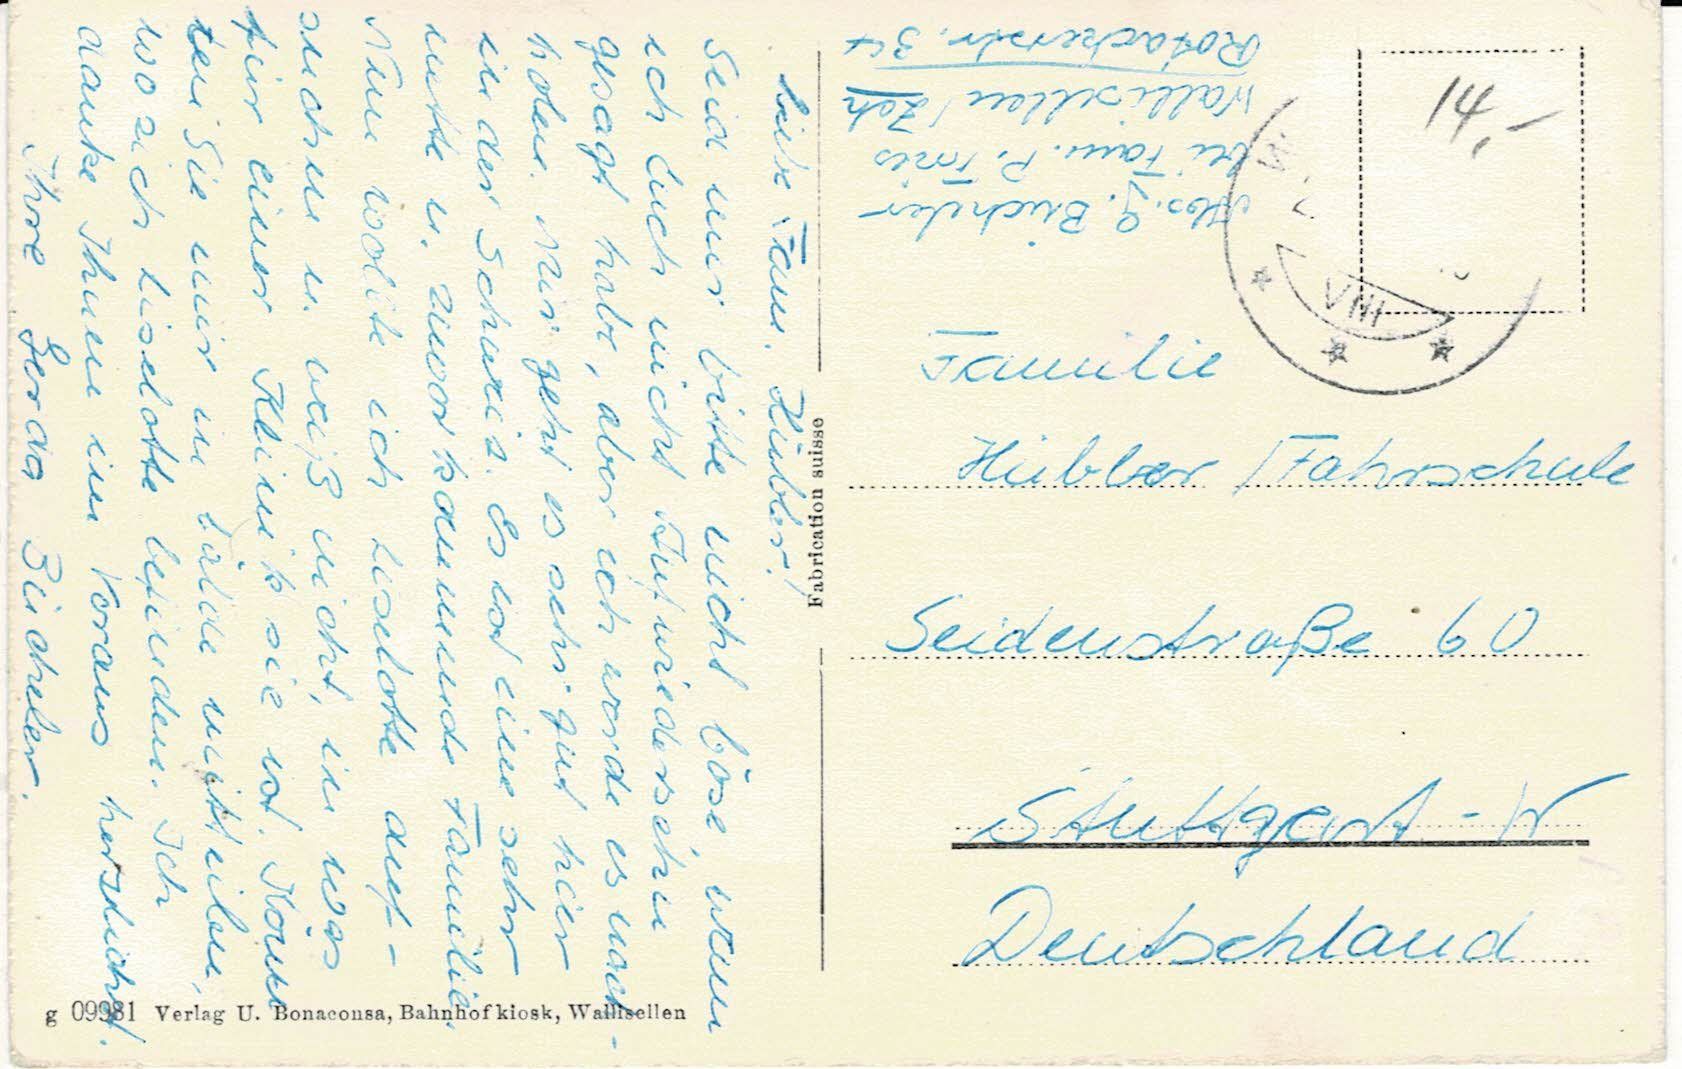 Liebe Fam. Hübler!
Seid mir bitte nicht böse wenn
ich Euch nicht Aufwiedersehn
gesagt habe, aber ich werde es nach-
holen. Mir geht es sehr gut hier
in der Schweiz. Es ist eine sehr
nette u. zuvorkommende Familie.
Nun wollte ich Liselotte auf-
suchen u. weiß nicht, in was
für einer Klinik sie ist. Könn
ten Sie mir in bälde mitteilen,
wo sich Liselotte befindet. Ich
danke Ihnen im Voraus herzlichst.
Ihre Gerda Büchler.
Abs. G. Büchler
bei Fam. P.
Wallisellen / Zch
Rotackerstr. 34
14,-
VIII
Familie
Hübler / Fahrschule
Seidenstraße 60
Stuttgart-W
Deutschland
Fabrication suisse
g 09981 Verlag U. Bonaconsa, Bahnhofkiosk, Wallisellen